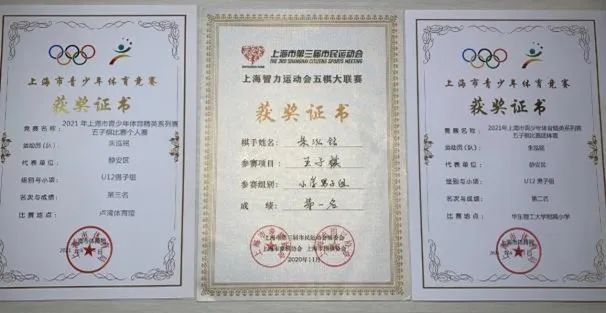 上海市青少年体育竞赛
获奖证书
竞赛名称: 2021年上海市青少年体育精英系列赛
五子棋比赛个人赛
运动员(队): 朱泓铭
代表单位: 静安区
组别与小项: U12男子组
名次与成绩: 第三名
比赛地点: 卢湾体育馆
上海市体育局
上海市第三届市民运动会
THE 3RD SHANGHAI CITIZENS SPORTS MEETING
上海智力运动会五棋大联赛
获奖证书
棋手姓名: 朱泓铭
参赛项目: 五子棋
参赛组别: 小学男子组
成绩: 第一名
上海市第三届市民运动会组委会
上海市象棋协会 上海市围棋协会
2020年11月
上海市青少年体育竞赛
获奖证书
竞赛名称: 2021年上海市青少年体育精英系列赛
五子棋比赛团体赛
运动员(队): 朱泓铭
代表单位: 静安区
组别与小项: U12男子组
名次与成绩: 第二名
比赛地点: 华东理工大学附属小学
上海市体育局